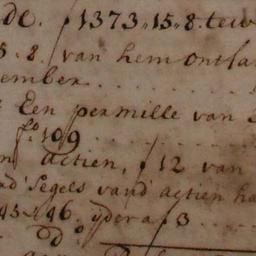 de. ƒ 1373 „ 15 „ 8. tew
5. 8. van hem ontfa
ember
Een per mille van
fo. 109
actien, ƒ 12 van
Segels vand actien ha
45 46. ijder a ƒ 3
Do.